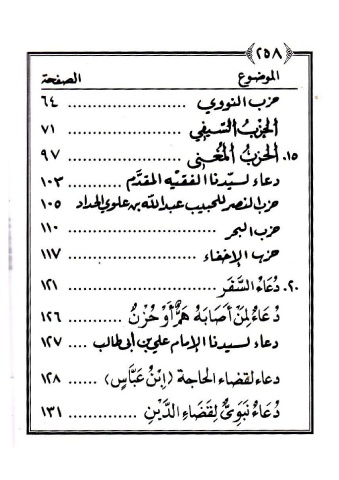 ﴿٢٥٨﴾
الموضوع الصفحة
حزب النووي .................... ٦٤
الْحِزْبُ السَّيْفِي .................... ٧١
١٥. الْحِزْبُ الْمُغْنِي .................... ٩٧
دعاء لسيّدنا الفقيه المقدَّم .................... ١٠٣
حزب النصر للحبيب عبد الله بن علوي الحداد ١٠٥
حزب البحر .................... ١١٠
حزب الإخفاء .................... ١١٧
٢٠. دُعَاءُ السَّفَرِ .................... ١٢١
دُعَاءٌ لِمَنْ أَصَابَهُ هَمٌّ أَوْ حُزْنٌ .......... ١٢٦
دعاء لسيدنا الإمام علي بن ابى طالب .... ١٢٧
دعاء لقضاء الحاجة (اِبْنُ عَبَّاسٍ) ....... ١٢٨
دُعَاءٌ نَبَوِيٌّ لِقَضَاءِ الدَّيْنِ .............. ١٣١